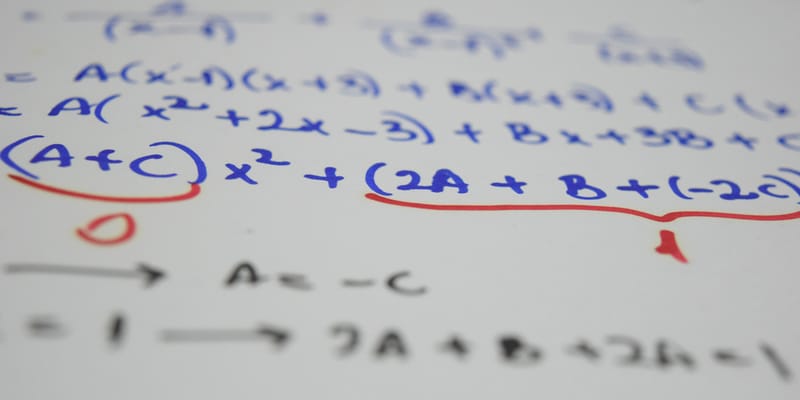 = A(x-1)(x+3) + B(x+3) + C(x
= A(x²+2x-3) + Bx+3B+C
(A+C)x² + (2A + B+(-2C)
0 1
→ A = -C
= 1 → 2A + B +2A = 1